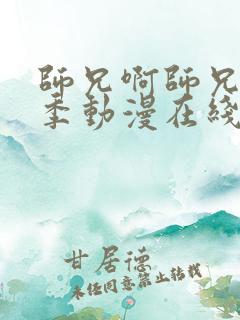 師兄啊師兄
季動漫在綫
甘居德
未经同意禁止转载